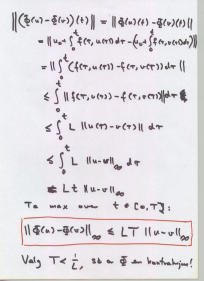 ‖(Φ(u)-Φ(v))(t)‖ = ‖Φ(u)(t) - Φ(v)(t)‖
= ‖u₀+∫₀ᵗ f(τ,u(τ))dτ - (u₀+∫₀ᵗ f(τ,v(τ))dτ)‖
= ‖∫₀ᵗ f(τ,u(τ)) - f(τ,v(τ)) dτ‖
≤ ∫₀ᵗ ‖f(τ,u(τ)) - f(τ,v(τ))‖ dτ
≤ ∫₀ᵗ L ‖u(τ)-v(τ)‖ dτ
≤ ∫₀ᵗ L ‖u-v‖_∞ dτ
≤ Lt ‖u-v‖_∞
Ta max over t ∈ [0,T]:
‖Φ(u)-Φ(v)‖_∞ ≤ LT ‖u-v‖_∞
Velg T < 1/L, så er Φ en kontraksjon!